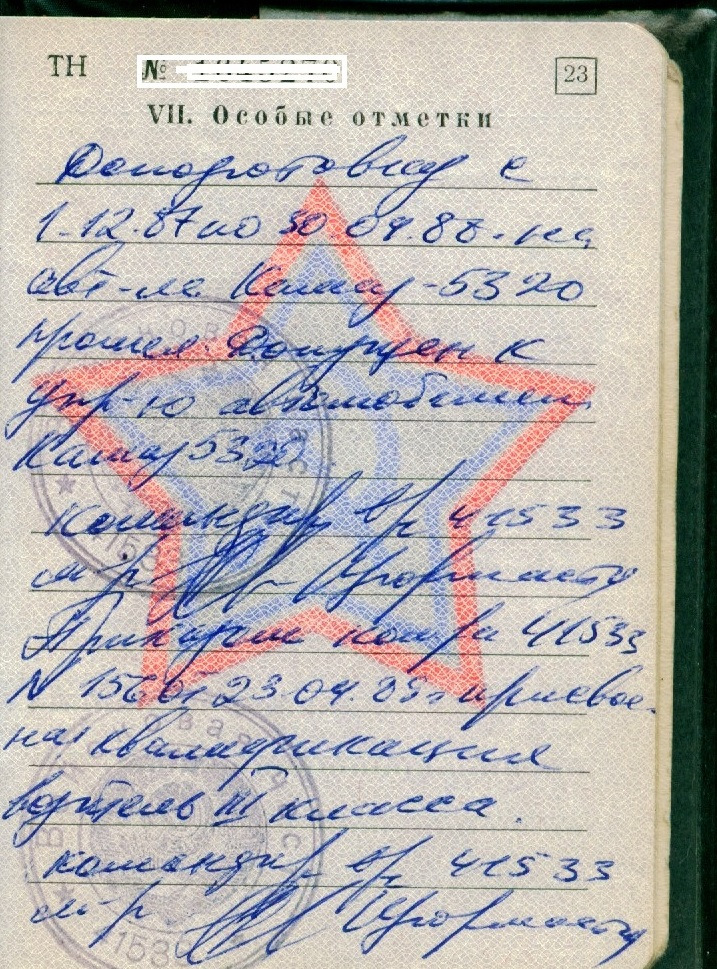 ТН № 23
VII. Особые отметки
Доподготовку с
1.12.87 по 30.04.88. на
авт-ле Камаз-5320
прошел. Допущен к
упр-ю автомобилем
Камаз 5320.
командир в/ч 41533
м-р
Приказом ком. в/ч 41533
N 156 от 23.04.88г присвое-
на квалификация
водитель III класса.
командир в/ч 41533
м-р